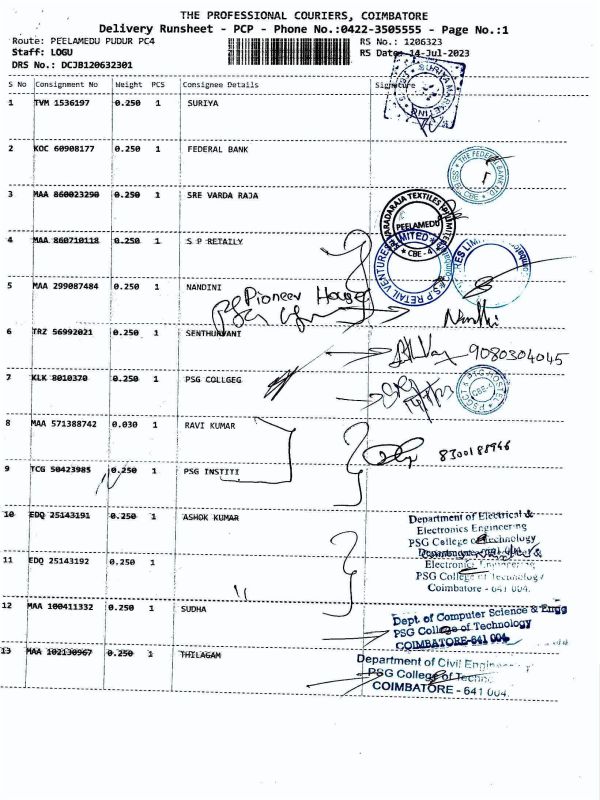 THE PROFESSIONAL COURIERS, COIMBATORE
Delivery Runsheet - PCP - Phone No.:0422-3505555 - Page No.:1
Route: PEELAMEDU PUDUR PC4 RS No.: 1206323
Staff: LOGU RS Date: 14-Jul-2023
DRS No.: DCJB120632301
S No Consignment No Weight PCS Consignee Details Signature
1 TVM 1536197 0.250 1 SURIYA
2 KOC 60908177 0.250 1 FEDERAL BANK
THE FEDERAL BANK LTD
CBE
3 MAA 860023290 0.250 1 SRE VARDA RAJA
VARADARAJA TEXTILES
PEELAMEDU
CBE - 4
4 MAA 860710118 0.250 1 S P RETAILY
S.P RETAIL VENTURES LIMITED
5 MAA 299087484 0.250 1 NANDINI
Pioneer House
Nandhi
6 TRZ 56992021 0.250 1 SENTHURVANI
9080304045
7 KLK 8010370 0.250 1 PSG COLLGEG
8 MAA 571388742 0.030 1 RAVI KUMAR
8300188946
9 TCG 50423985 0.250 1 PSG INSTITI
10 EDQ 25143191 0.250 1 ASHOK KUMAR
Department of Electrical &
Electronics Engineering
PSG College of Technology
11 EDQ 25143192 0.250 1 "
Electronics Engineering
PSG College of Technology
Coimbatore - 641 004.
12 MAA 100411332 0.250 1 SUDHA
Dept. of Computer Science & Engg
PSG College of Technology
COIMBATORE-641 004
13 MAA 102130967 0.250 1 THILAGAM
Department of Civil Engineering
PSG College of Techno
COIMBATORE - 641 004.